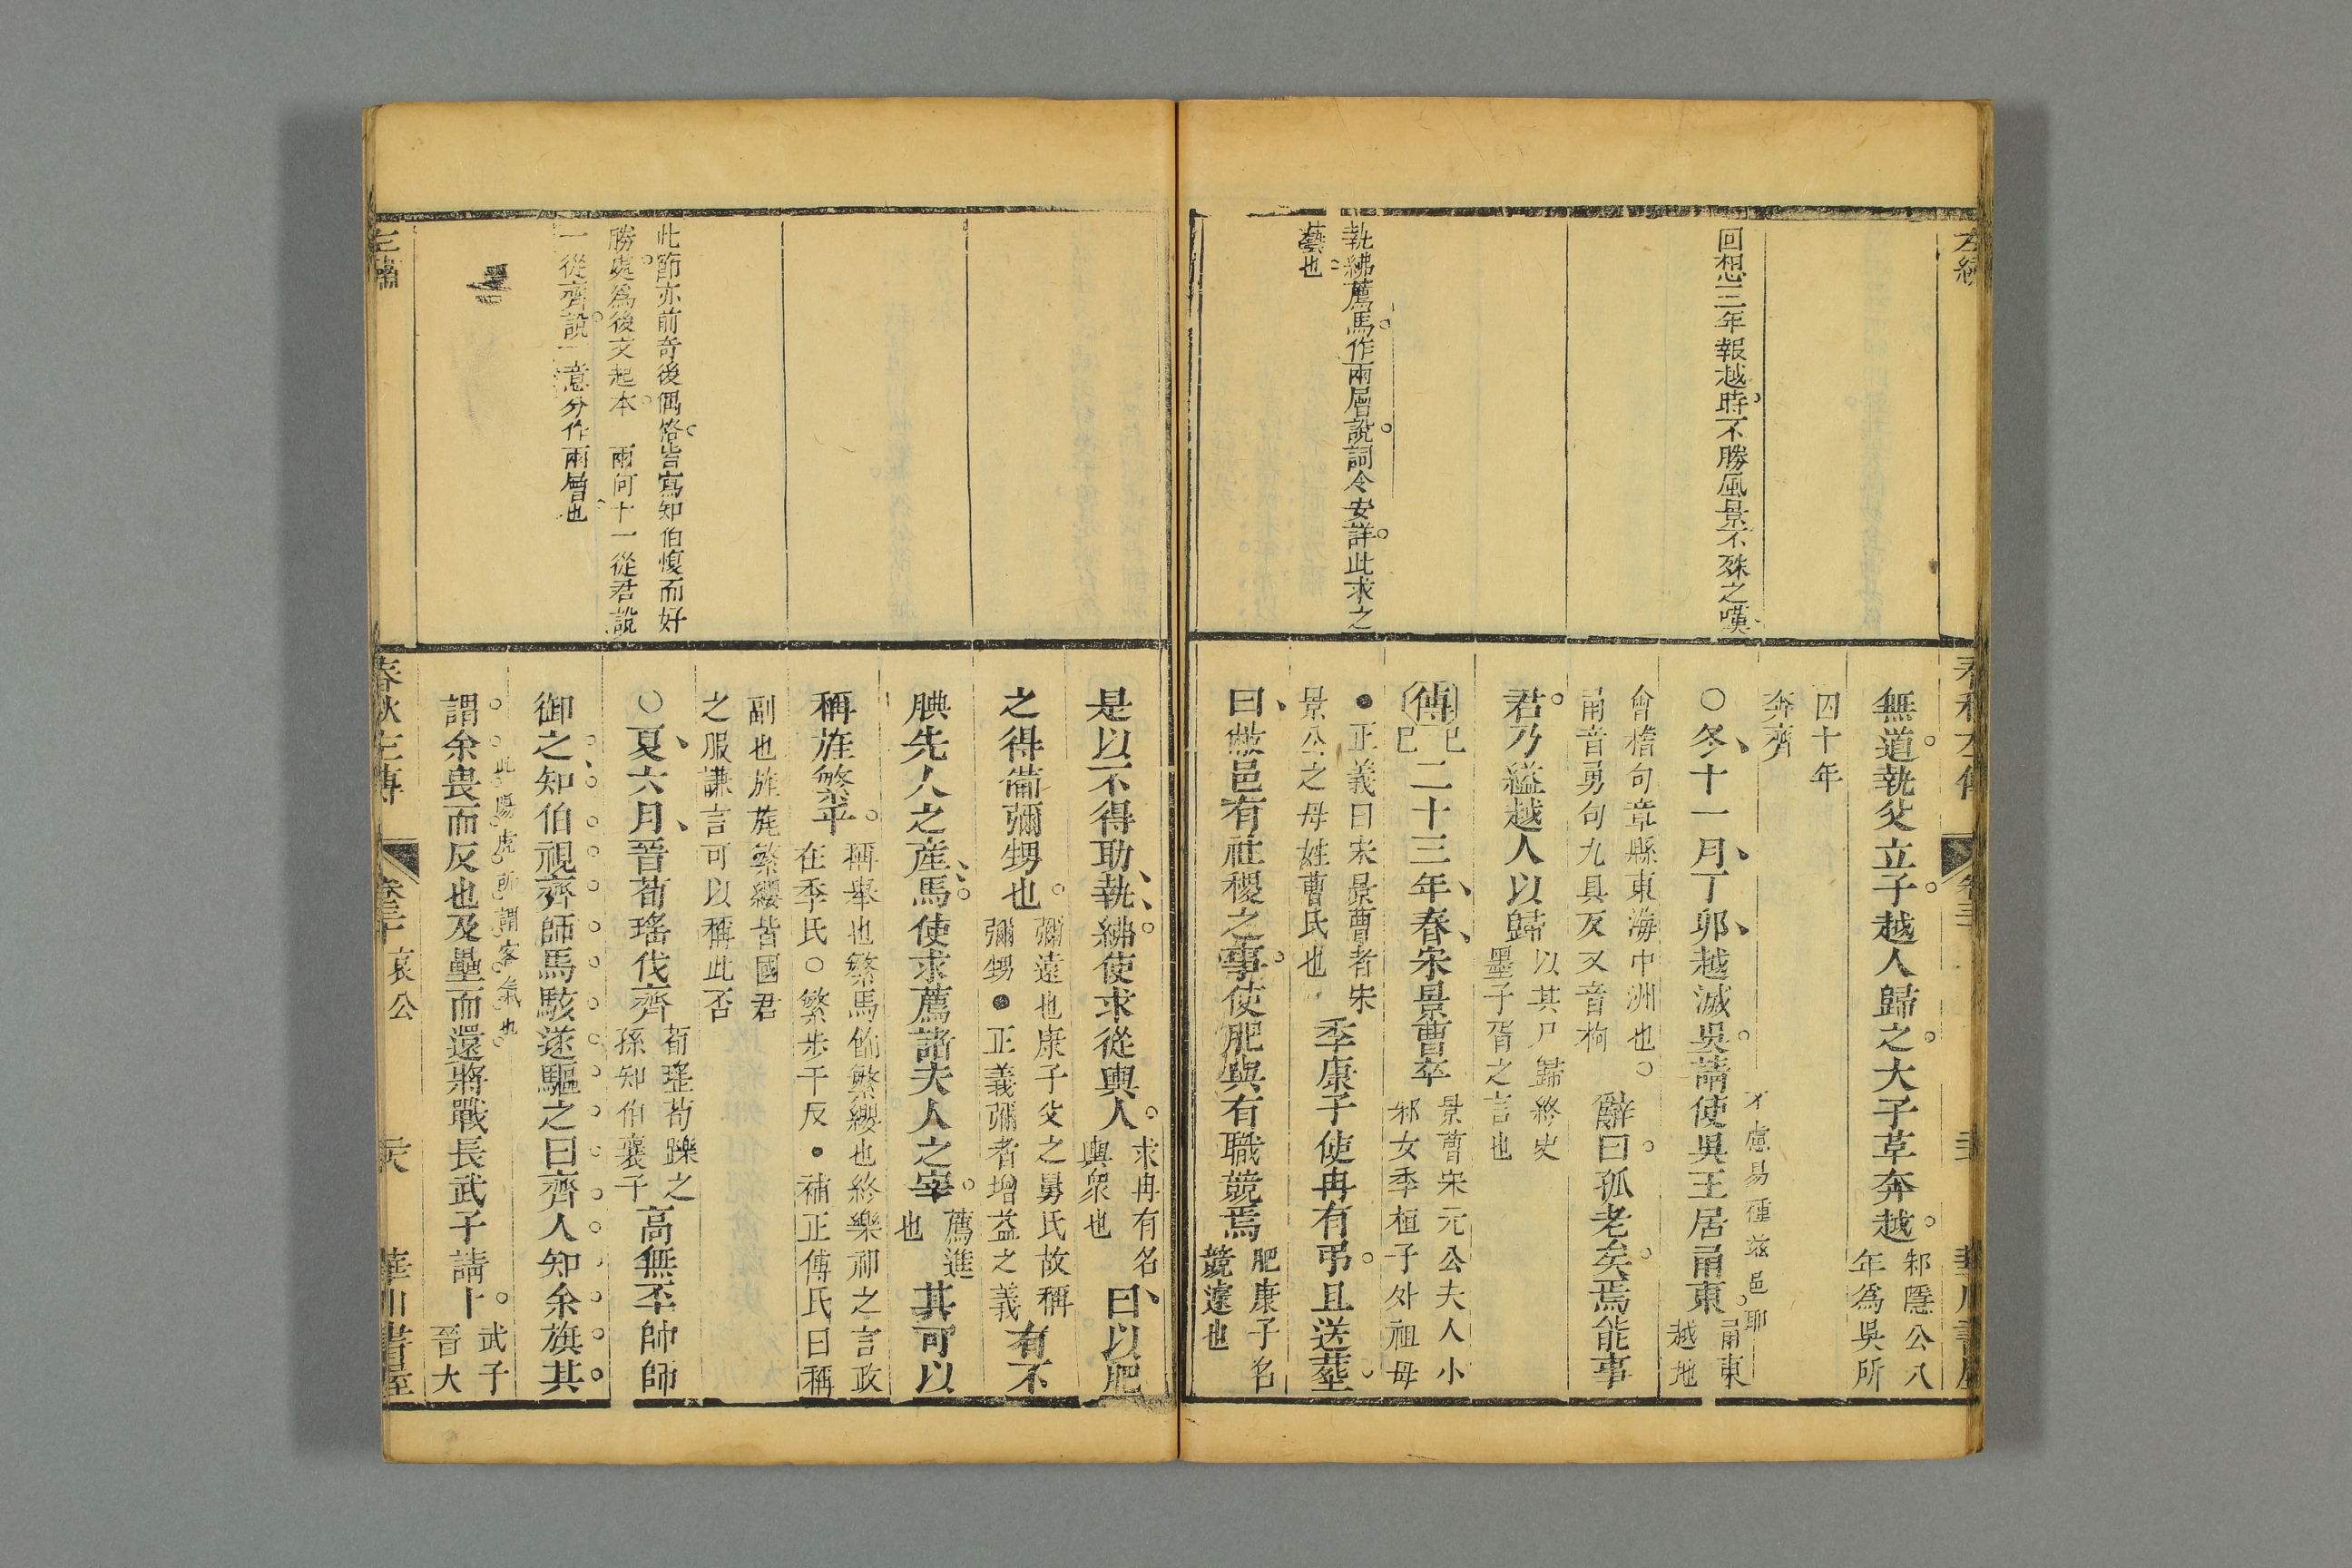 左繡
回想三年報越時不勝風景不殊之嘆
執紼薦馬作兩層說詞令安詳此求之
藝也
春秋左傳
無道執父立子越人歸之大子革奔越
邾隱公八
年爲吳所
四十年
奔齊
○冬十一月丁卯越滅吳請使吳王居甬東
甬東
越地
不慮易種茲邑耶
會稽句章縣東海中洲也○
甬音勇句九具反又音枸
辭曰孤老矣焉能事
君乃縊越人以歸
以其尸歸終史
墨子胥之言也
傳
二十三年春宋景曹卒
景曹宋元公夫人小
邾女季桓子外祖母
●正義曰宋景曹者宋
景公之母姓曹氏也
季康子使冉有弔且送葬
曰敝邑有社稷之事使肥與有職競焉
肥康子名
競遽也
此節亦前奇後偶格皆寫知伯愎而好
勝處爲後文起本 兩何十一從君說
一從齊說一意分作兩層也
是以不得助執紼使求從輿人
求冉有名
輿衆也
曰以肥
之得備彌甥也
彌遠也康子父之舅氏故稱
彌甥●正義彌者增益之義
有不
腆先人之產馬使求薦諸夫人之宰
薦進
也
其可以
稱旌繁乎
稱舉也繁馬飾繁纓也終樂祁之言政
在季氏○繁步干反●補正傅氏曰稱
副也旌旄繁纓皆國君
之服謙言可以稱此否
○夏六月晉荀瑤伐齊
荀瑤荀躒之
孫知伯襄子
高無丕帥師
御之知伯視齊師馬駭遂驅之曰齊人知余旗其
此陽虎所謂客氣也
謂余畏而反也及壘而還將戰長武子請卜
武子
晉大
左繡
春秋左傳
卷三十
哀公
華川書屋